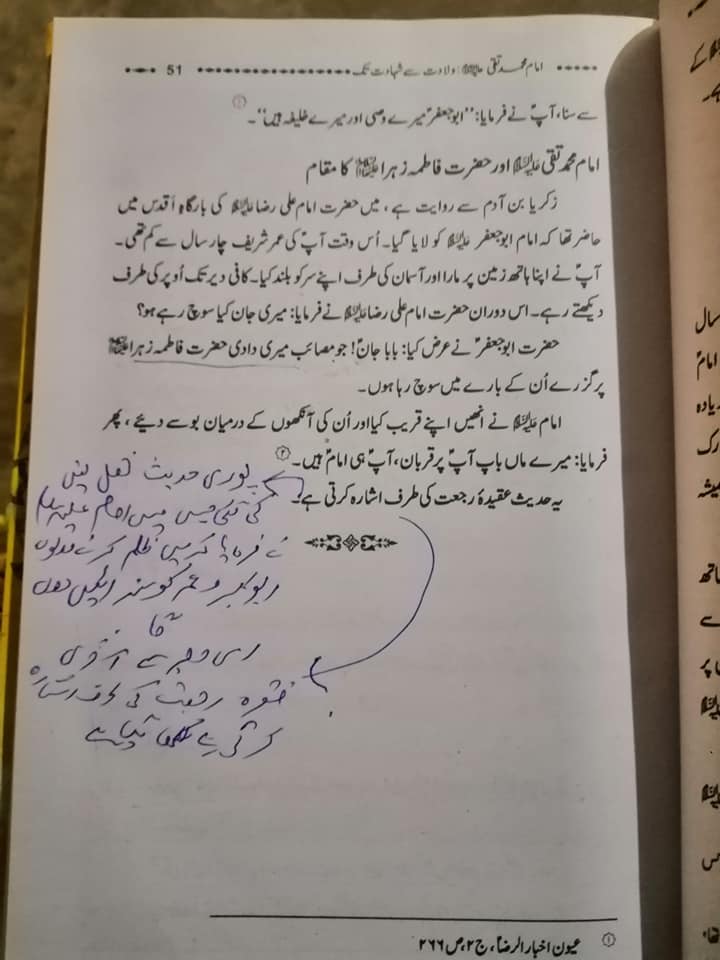 امام محمد تقی علیہ السلام: ولادت سے شہادت تک 51
سے سنا، آپؑ نے فرمایا: ''ابوجعفرؑ میرے وصی اور میرے خلیفہ ہیں''۔ ①
امام محمد تقی علیہ السلام اور حضرت فاطمہ زہرا علیہا السلام کا مقام
زکریا بن آدم سے روایت ہے، میں حضرت امام علی رضا علیہ السلام کی بارگاہِ اقدس میں
حاضر تھا کہ امام ابوجعفر علیہ السلام کو لایا گیا۔ اُس وقت آپؑ کی عمر شریف چار سال سے کم تھی۔
آپؑ نے اپنا ہاتھ زمین پر مارا اور آسمان کی طرف اپنے سر کو بلند کیا۔ کافی دیر تک اُوپر کی طرف
دیکھتے رہے۔ اس دوران حضرت امام علی رضا علیہ السلام نے فرمایا: میری جان کیا سوچ رہے ہو؟
حضرت ابوجعفرؑ نے عرض کیا: بابا جانؑ! جو مصائب میری دادی حضرت فاطمہ زہرا علیہا السلام
پر گزرے اُن کے بارے میں سوچ رہا ہوں۔
امام علیہ السلام نے انھیں اپنے قریب کیا اور اُن کی آنکھوں کے درمیان بوسے دیئے، پھر
فرمایا: میرے ماں باپ آپؑ پر قربان، آپؑ ہی امامؑ ہیں۔ ②
یہ حدیث عقیدۂ رجعت کی طرف اشارہ کرتی ہے۔
پوری حدیث نقل نہیں
کی گئی جس میں امام علیہ السلام
نے فرمایا کہ میں ظلم کرنے والوں
ابوبکر و عمر کو
گا
اسی وجہ سے
رجعت کی طرف اشارہ
کرتی ہے لکھا گیا ہے
① عیون اخبار الرضاؑ، ج ۲، ص ۲۶۶
سال
امامؑ
زیادہ